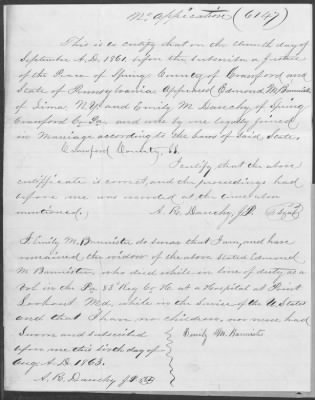 No Application (6147)
This is to certify that on the Eleventh day of
September A.D. 1861 before the subscriber a Justice
of the Peace of Spring County of Crawford and
State of Pennsylvania Appeared Edmond M. Bannister
of Lima N.Y. and Emily M. Dauchy of Spring
Crawford Co Pa and were by me legally joined
in Marriage according to the Laws of Said State
Crawford County, SS.
I certify that the above
certificate is correct, and the proceedings had
before me was recorded at the time above
mentioned.
A. R. Dauchy, J.P.
I Emily M. Bannister do swear that I am, and have
remained the widow of the above stated Edmond
M Bannister, who died while in line of duty as a
Vol in the Pa 83 Reg Co H. at a Hospital at Point
Lookout Md, while in the Service of the U States
and that I have no children, nor never had
Sworn and subscribed
Emily M. Bannister
before me this day of
Aug A.D. 1863.
A. R. Dauchy J.P.